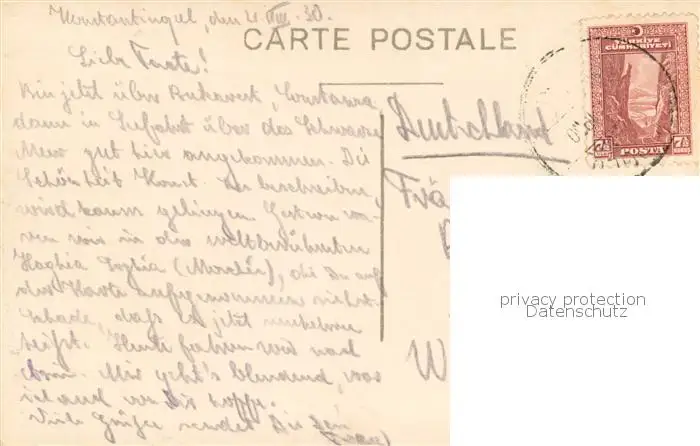 Konstantinopel, den 4. VIII. 30.
CARTE POSTALE
Liebe Tante!
Bin jetzt über Bukarest, Constanza
dann in Seefahrt über das Schwarze
Meer gut hier angekommen. Die
Schönheit Konst. zu beschreiben,
wird kaum gelingen. Gestern wa-
ren wir in der weltberühmten
Haghia Sophia (Moschee), die Du auf
der Karte aufgenommen siehst.
Schade, daß es jetzt
heißt. Heute fahren wir nach
Mir geht's blendend, was
ich auch von Dir hoffe.
Viele Grüße sendet Dir Dein
Deutschland
Frä
W
TÜRKİYE
CÜMHURİYETİ
7½ POSTA 7½
privacy protection
Datenschutz